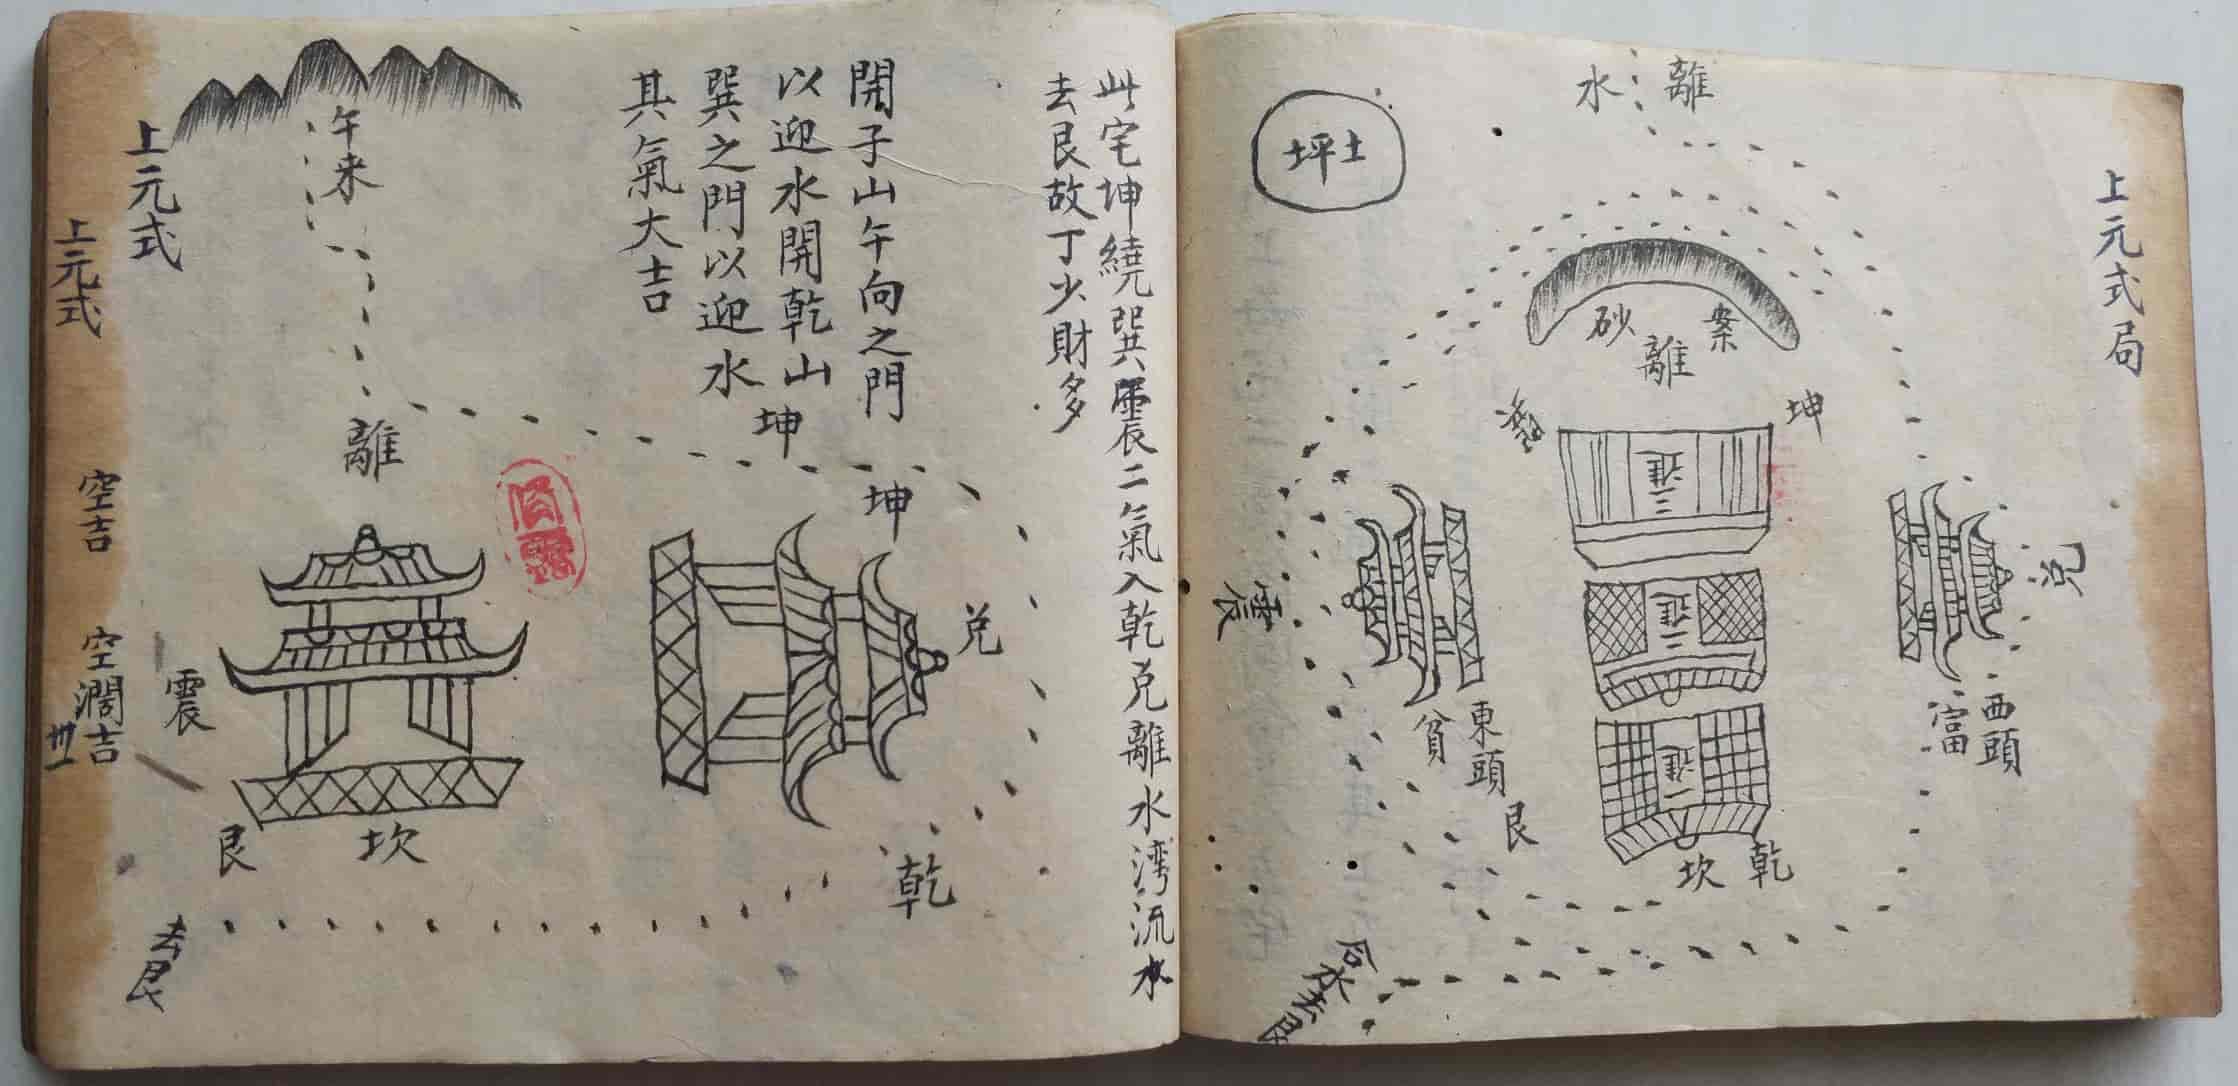 上元式局
離
水
坪土
案
砂
離
坤
三進
兌
二進
震
西頭
富
東頭
貧
一進
艮
乾
坎
合水去艮
此宅坤繞巽震二氣入乾兌離水湾流水
去艮故丁少財多
開子山午向之門
以迎水開乾山
巽之門以迎水
其氣大吉
午来
坤
離
坤
兌
震
坎
艮
乾
去艮
上元式
上元式
空吉
空濶吉
卅一